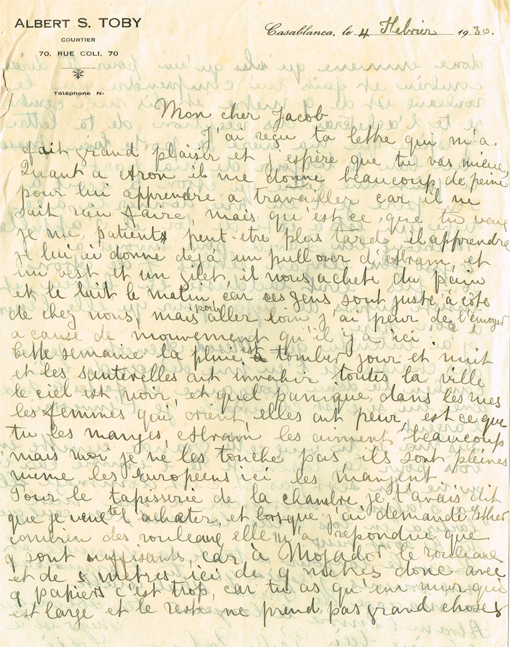 ALBERT S. TOBY
COURTIER
70. RUE COLI, 70
Téléphone N:
Casablanca, le 4 Febrier 1930.
Mon cher Jacob
J'ai reçu ta lettre qui m'a
fait grand plaisir et j'espère que tu vas mieux
Quant a Aron il me donne beaucoup de peine
pour lui apprendre a travailler car il ne
sait rien faire, mais qu'est ce que tu veux
je me patiente peut-etre plus tard il apprendra
je lui ai donné dejà un pull over d'Abram, et
une vest et un gilet, il nous achete du pain
et le lait le matin, car ces gens sont juste à côté
de chez nous, mais pour aller loin j'ai peur de l'envoyer
a cause de mouvement qu'il y a ici.
Cette semaine la pluie a tomber jour et nuit
et les sauterelles ont invahir toutes la ville
le ciel est noir, et quel panique dans les rues
les femmes qui crient, elles ont peur, est ce que
tu les manges, Abram les aiment beaucoup
mais moi je ne les touche pas ils sont pleines
même les Européens ici les mangent.
Pour le tapisserie de la chambre je t'avais dit
que je veux acheter, et lorsque j'ai demandé Esther
combien des rouleaux elle m'a repondue que
9 sont suffisants, car a Mogador le rouleaux
et de 5 mètres ici de 9 mètres donc avec
9 papiers c'est trop, car tu as qu'un mur qui
est large et le reste ne prend pas grand choses